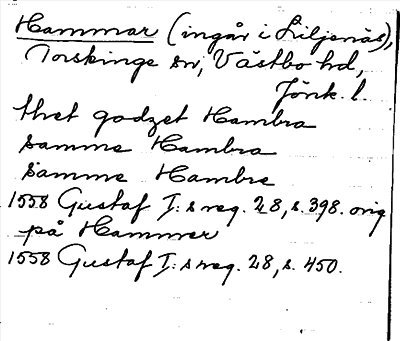 Hammar (ingår i Liljenäs),
Torskinge sn, Västbo hd,
Jönk. l.
thet godzet Hambra
samme Hambra
samme Hambre
1558 Gustaf I:s reg. 28, s. 398. orig
på Hammer
1558 Gustaf I:s reg. 28, s. 450.